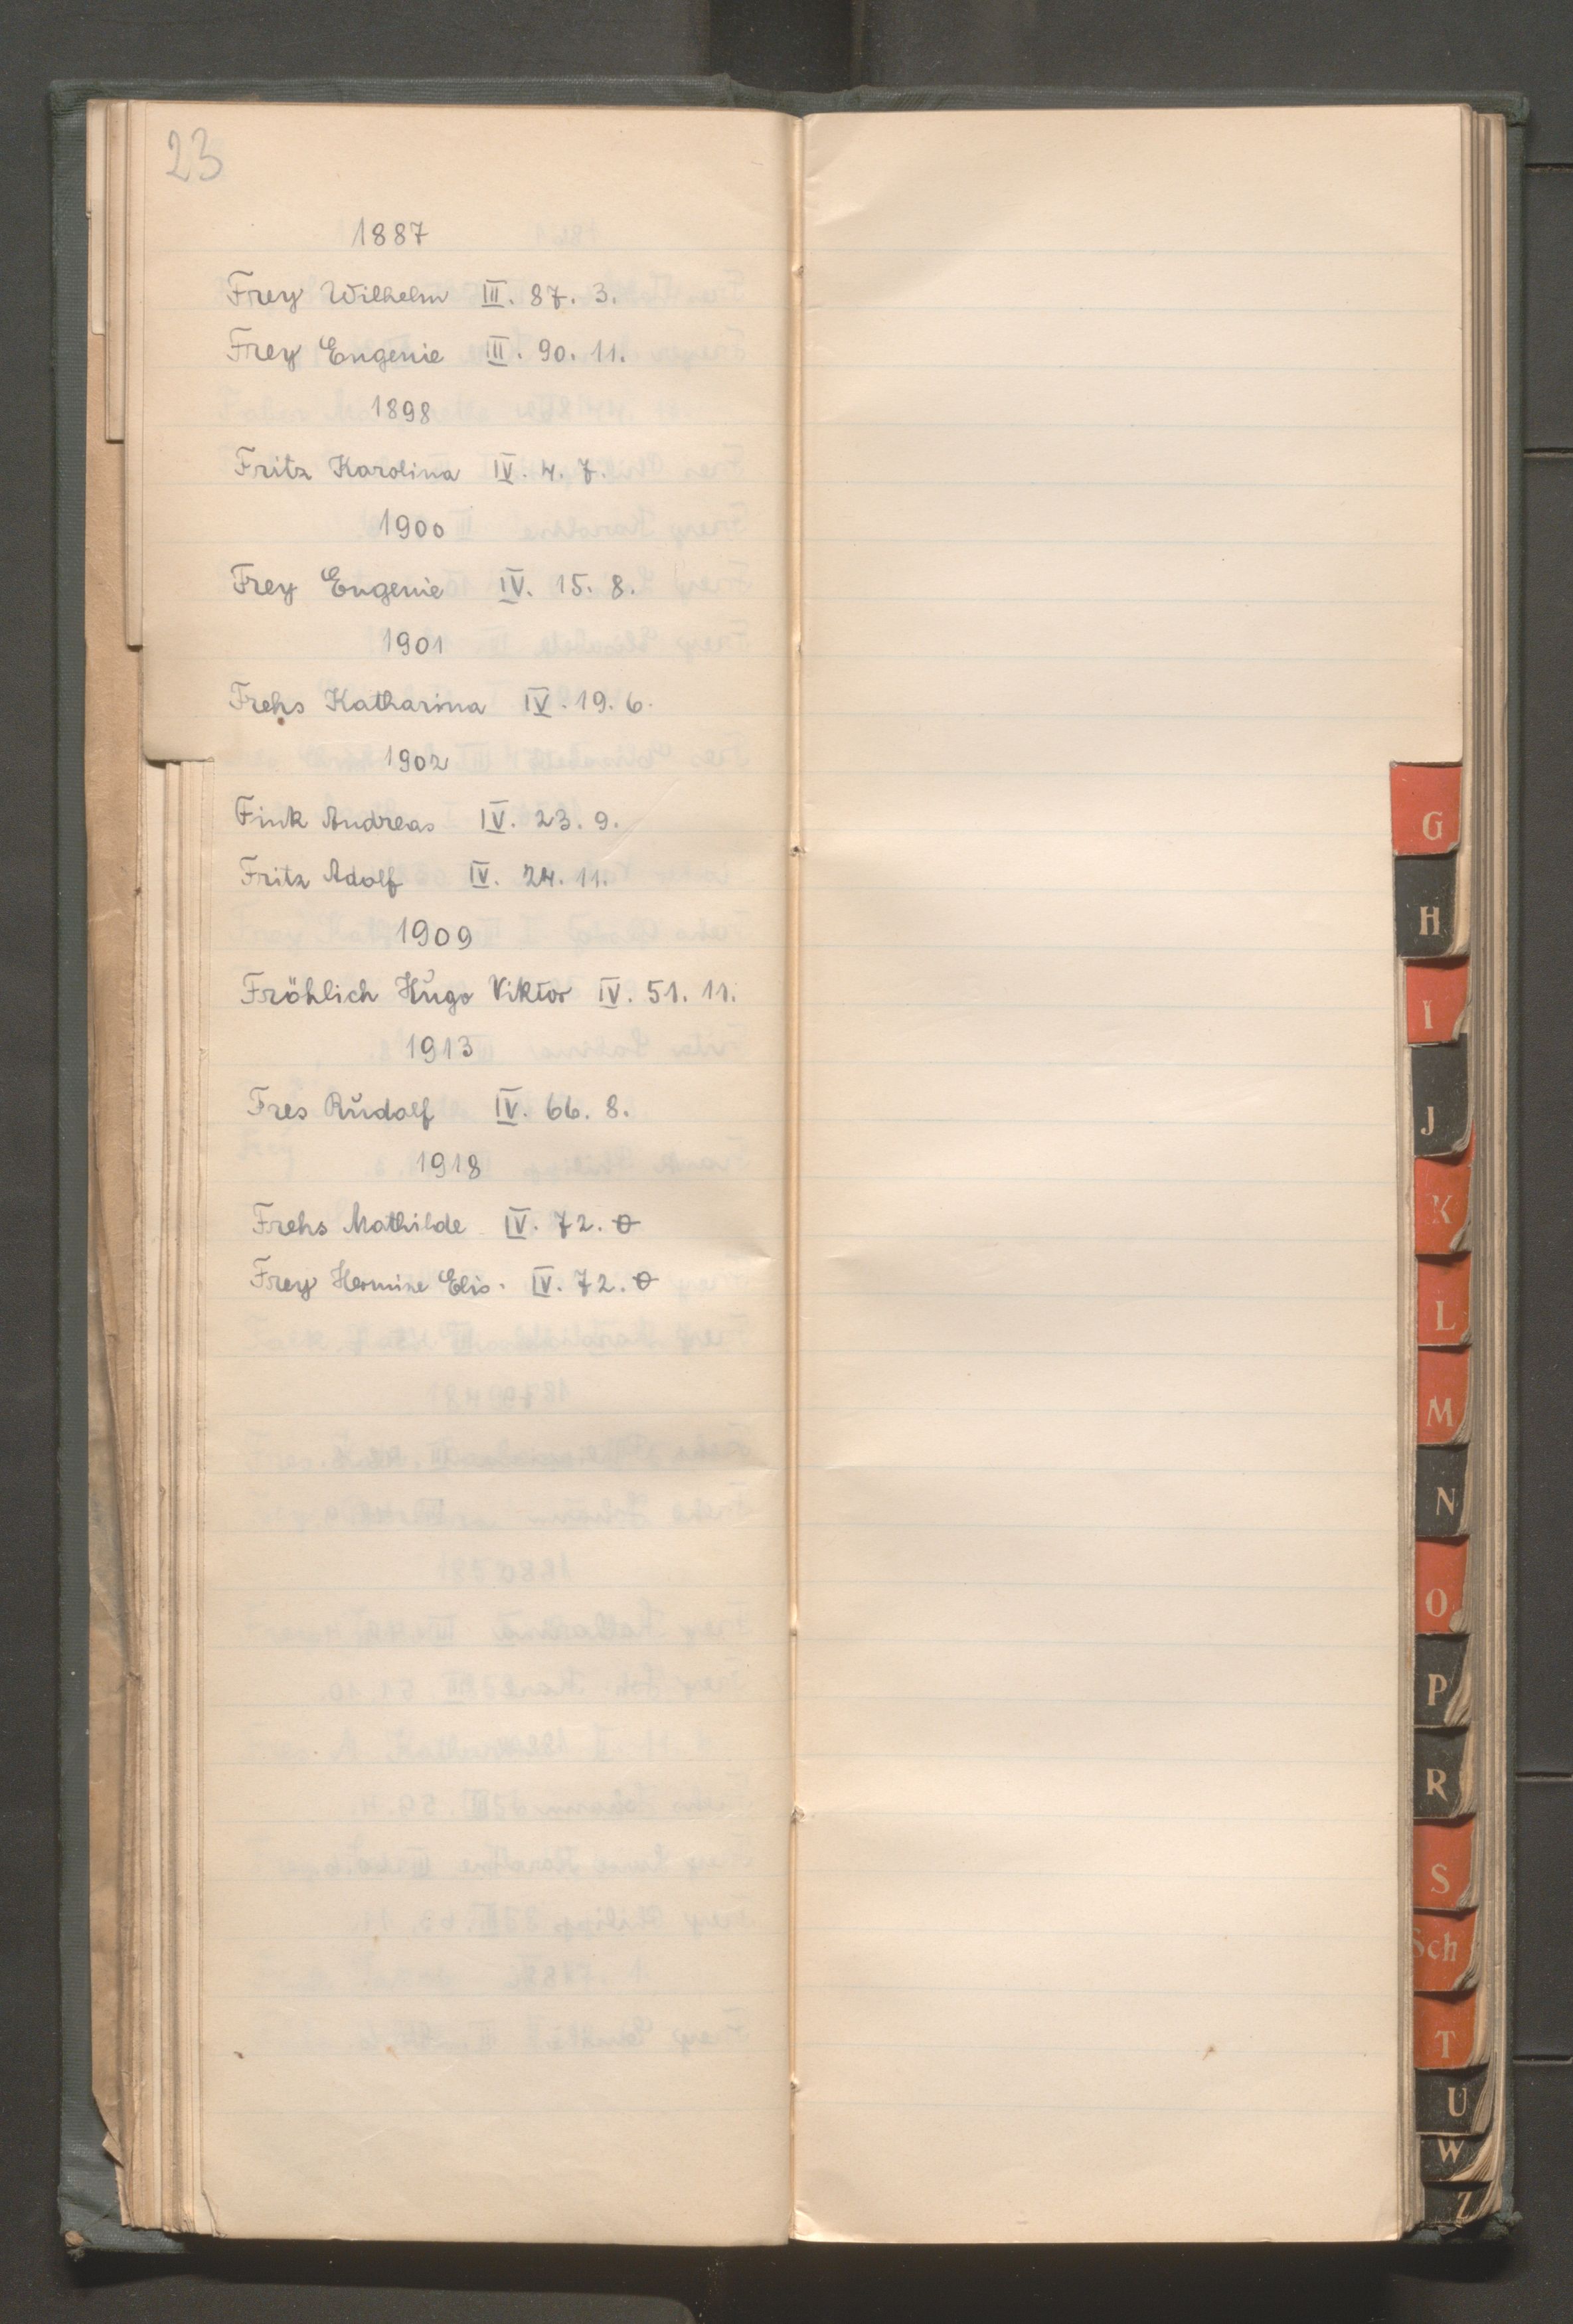 23
1887
Frey Wilhelm III. 87. 3.
Frey Eugenie III. 90. 11.
1898
Fritz Karolina IV. 4. 7.
1900
Frey Eugenie IV. 15. 8.
1901
Frehs Katharina IV. 19. 6.
1902
Fink Andreas IV. 23. 9.
Fritz Adolf IV. 24. 11.
1909
Fröhlich Hugo Viktor IV. 51. 11.
1913
Fres Rudolf IV. 66. 8.
1918
Frehs Mathilde IV. 72. 0
Frey Hermine Elis. IV. 72. 0
G
H
I
J
K
L
M
N
O
P
R
S
Sch
T
U
W
Z